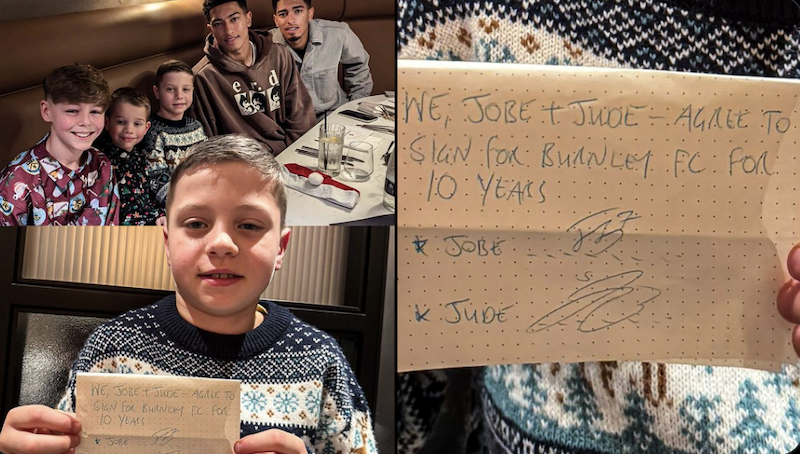 WE, JOBE + JUDE - AGREE TO
SIGN FOR BURNLEY FC FOR
10 YEARS
* JOBE
* JUDE
WE, JOBE + JUDE - AGREE TO
SIGN FOR BURNLEY FC FOR
10 YEARS
* JOBE